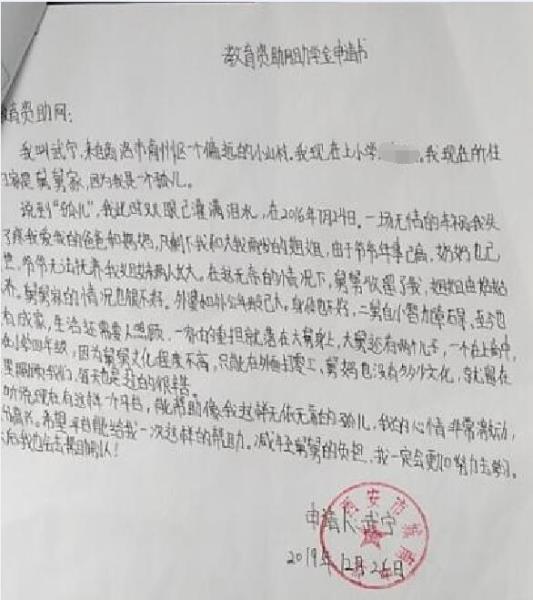 教育资助网助学金申请书
教育资助网：
我叫武宁，来自商洛市商州区一个偏远的小山村。我现在上小学 我现在的住
家是舅舅家，因为我是一个孤儿。
说到“孤儿”，我此时双眼已灌满泪水，在2016年1月24日。一场无情的车祸我失
了疼我爱我的爸爸和妈妈，只剩下我和大我两岁的姐姐，由于爷爷年事已高，奶奶也已
世，爷爷无法抚养我姐妹两人长大。在这无奈的情况下，舅舅收留了我，姐姐由姑姑
养。舅舅家的情况也很不好。外婆和外公年龄已大，身体也不好，二舅自小智力障碍，至今也
有成家，生活还需要人照顾，一家的重担就落在大舅身上，大舅还有两个儿子，一个在上高中，
在小学四年级，因为舅舅文化程度不高，只能在外面打零工，舅妈也没有多少文化，就留在
里照顾我们，每天也是过的很辛苦。
听说现在有这样一个平台，能帮助像我这样无依无靠的孤儿，我的心情非常激动，
请书。希望平台能给我一次这样的帮助。减轻舅舅的负担，我一定会更加努力去学习。
后我也会去帮助别人！
申请人：武宁
2019年12月26日
西安市